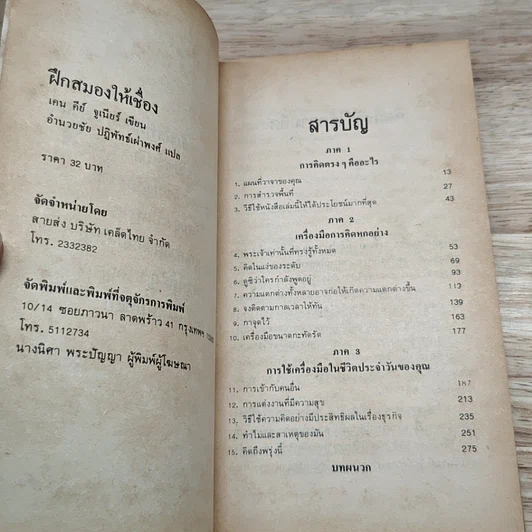 ฝึกสมองให้เชื่อง
เคน คีย์ จูเนียร์ เขียน
อำนวยชัย ปฏิพัทธ์เผ่าพงศ์ แปล
ราคา 32 บาท
จัดจำหน่ายโดย
สายส่ง บริษัท เคล็ดไทย จำกัด
โทร. 2332382
จัดพิมพ์และพิมพ์ที่จตุจักรการพิมพ์
10/14 ซอยภาวนา ลาดพร้าว 41 กรุงเทพฯ
โทร. 5112734
นางนิศา พระปัญญา ผู้พิมพ์ผู้โฆษณา
สารบัญ
ภาค 1
การคิดตรง ๆ คืออะไร
1. แผนที่วาจาของคุณ 13
2. การสำรวจพื้นที่ 27
3. วิธีใช้หนังสือเล่มนี้ให้ได้ประโยชน์มากที่สุด 43
ภาค 2
เครื่องมือการคิดหกอย่าง
4. พระเจ้าเท่านั้นที่ทรงรู้ทั้งหมด 53
5. คิดในแง่ของระดับ 69
6. ดูซิว่าใครกำลังพูดอยู่ 93
7. ความแตกต่างทั้งหลายอาจก่อให้เกิดความแตกต่างขึ้น 112
8. จงติดตามกาลเวลาให้ทัน 139
9. กาจุดไว้ 163
10. เครื่องมือขนาดกะทัดรัด 177
ภาค 3
การใช้เครื่องมือในชีวิตประจำวันของคุณ
11. การเข้ากับคนอื่น 187
12. การแต่งงานที่มีความสุข 213
13. วิธีใช้ความคิดอย่างมีประสิทธิผลในเรื่องธุรกิจ 235
14. ทำไมและสาเหตุของมัน 251
15. คิดถึงพรุ่งนี้ 275
บทผนวก